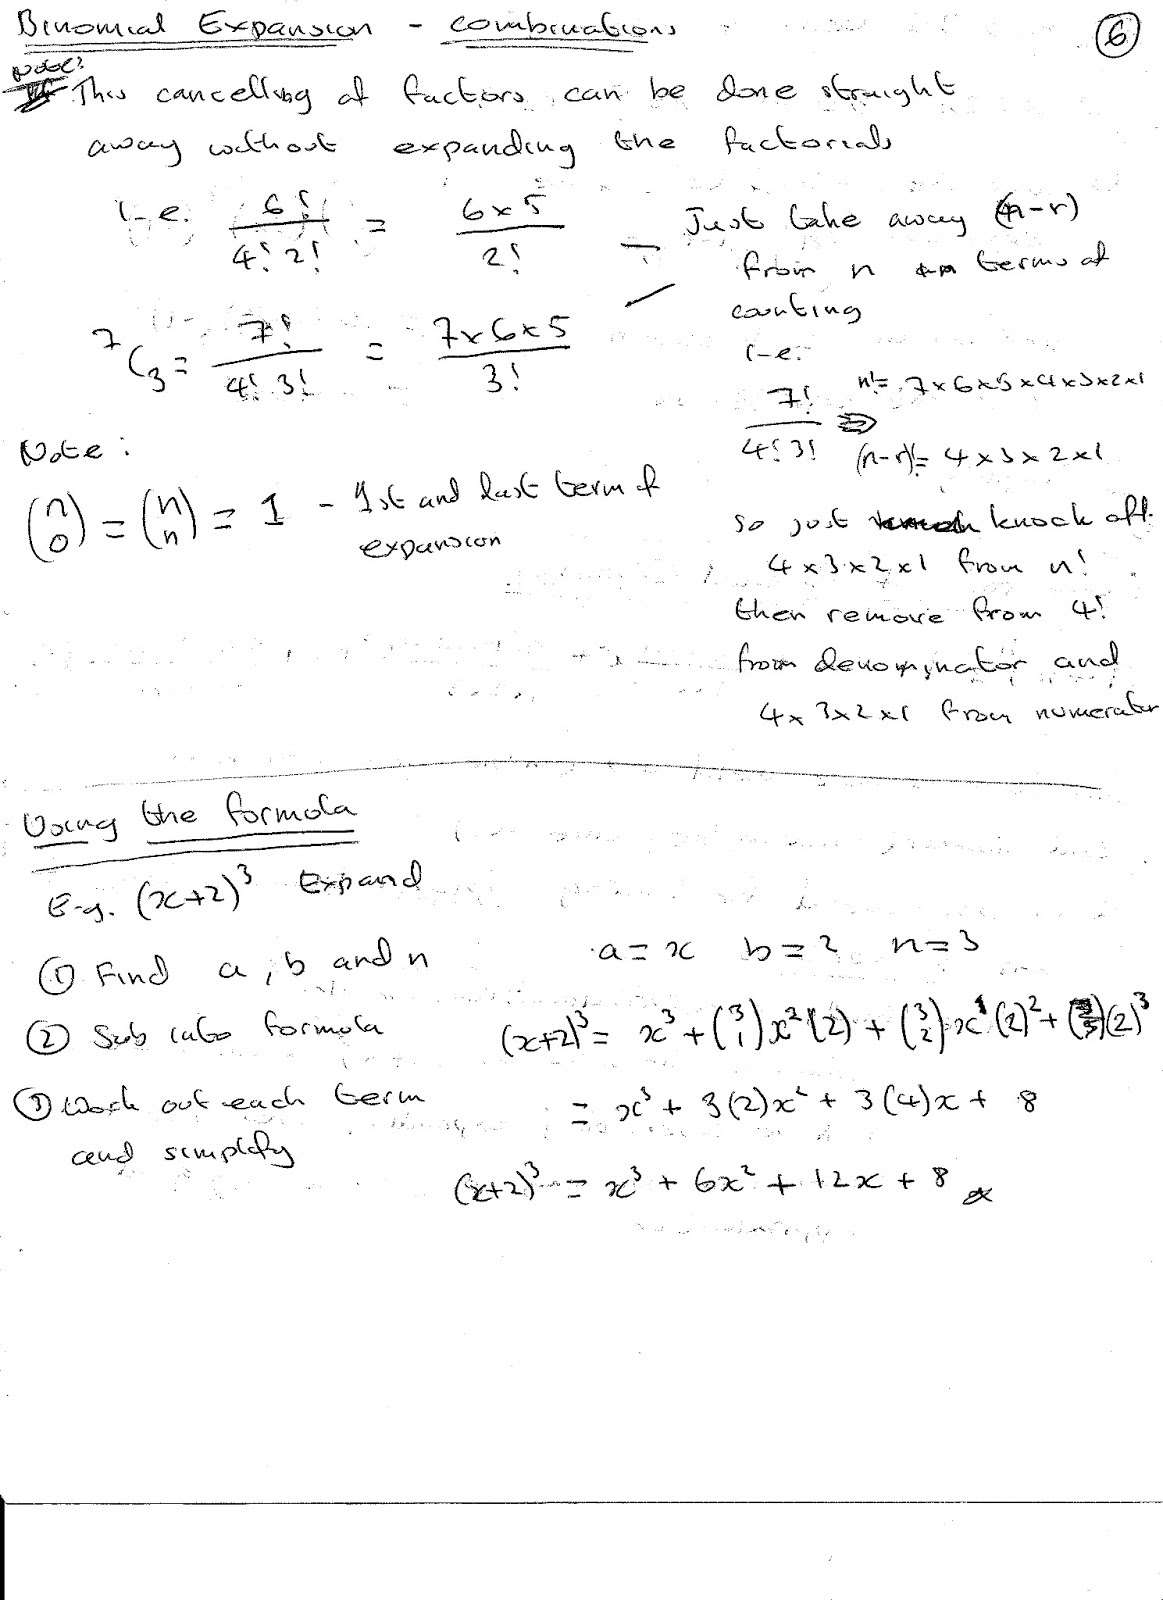 Binomial Expansion - combinations
6
Note:
This cancelling of factors can be done straight
away without expanding the factorials
i-e. 6!/4! 2! = 6 x 5/2!
7C3 = 7!/4! 3! = 7 x 6 x 5/3!
Just take away (n-r)
from n terms of
counting
i-e.
7!/4! 3! ⇒ n! = 7 x 6 x 5 x 4 x 3 x 2 x 1
(n-r)! = 4 x 3 x 2 x 1
so just knock off
4 x 3 x 2 x 1 from n!
then remove from 4!
from denominator and
4 x 3 x 2 x 1 from numerator
Note:
(n 0) = (n n) = 1 - 1st and last term of
expansion
Using the formula
E-g. (x+2)³ Expand
① Find a, b and n
a = x b = 2 n = 3
② Sub into formula
(x+2)³ = x³ + (3 1)x²(2) + (3 2)x¹(2)² + (3 3)(2)³
③ Work out each term
and simplify
= x³ + 3(2)x² + 3(4)x + 8
(x+2)³ = x³ + 6x² + 12x + 8